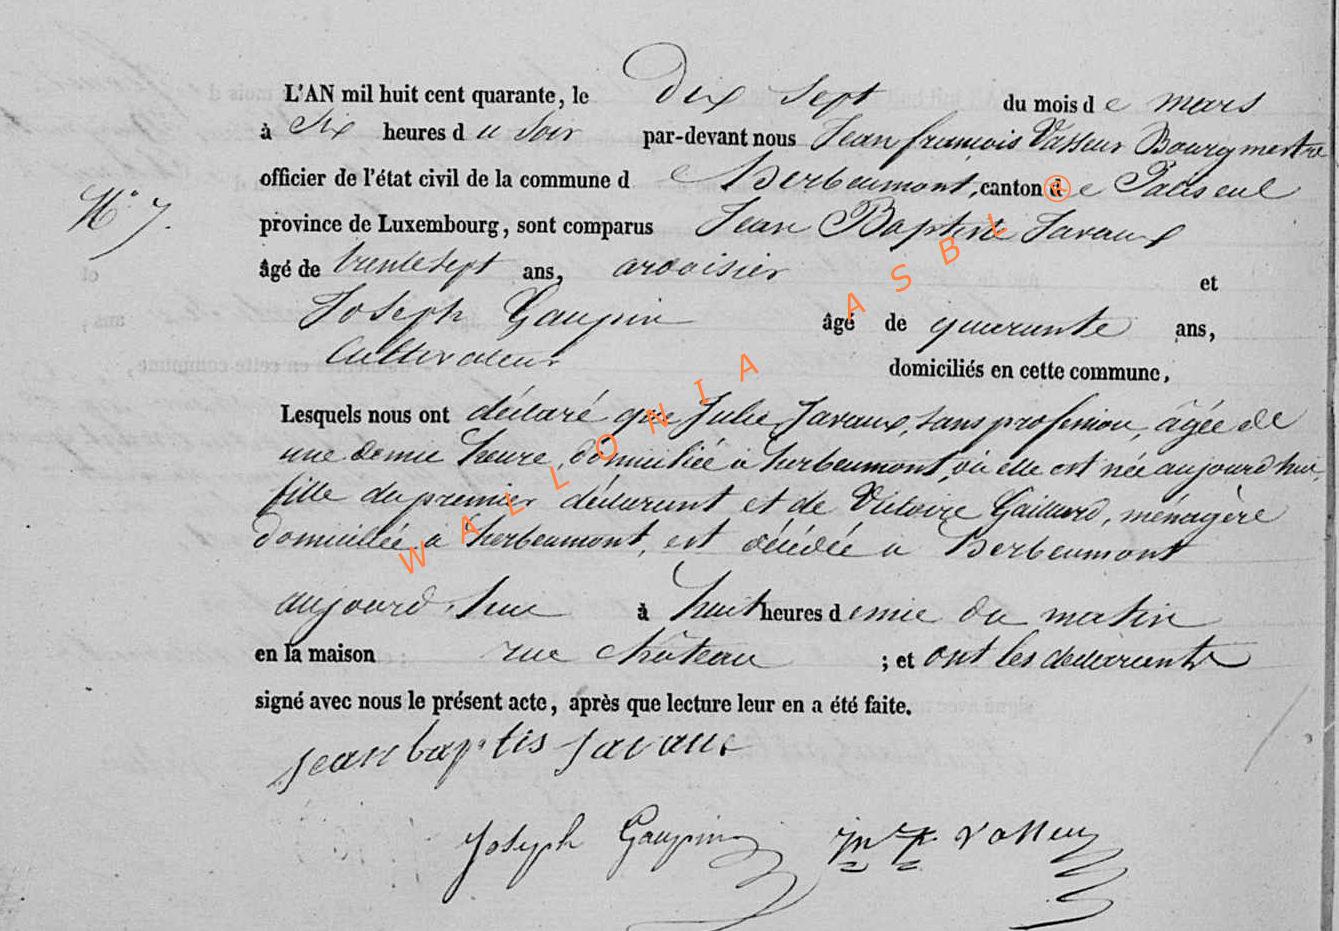 L'AN mil huit cent quarante, le Dix Sept du mois de mars
à Six heures du Soir par-devant nous Jean françois Vasseur Bourgmestre
officier de l'état civil de la commune de Herbeumont, canton de Paliseul
N° 7. province de Luxembourg, sont comparus Jean Baptiste Javaux
âgé de trente sept ans, ardoisier et
Joseph Gaupin âgé de quarante ans,
Cultivateur domiciliés en cette commune,
Lesquels nous ont déclaré que Julie Javaux, sans profession, âgée de
une demie heure, domiciliée à herbeumont, où elle est née aujourd'hui,
fille du premier déclarant et de Victoire Gaillard, ménagère
domiciliée à herbeumont, est décédée à Herbeumont
aujourd'hui à huit heures demie du matin
en la maison rue château ; et ont les déclarants
signé avec nous le présent acte, après que lecture leur en a été faite.
jean baptis javaux
Joseph Gaupin Vasseur
WALLONIA ASBL ®